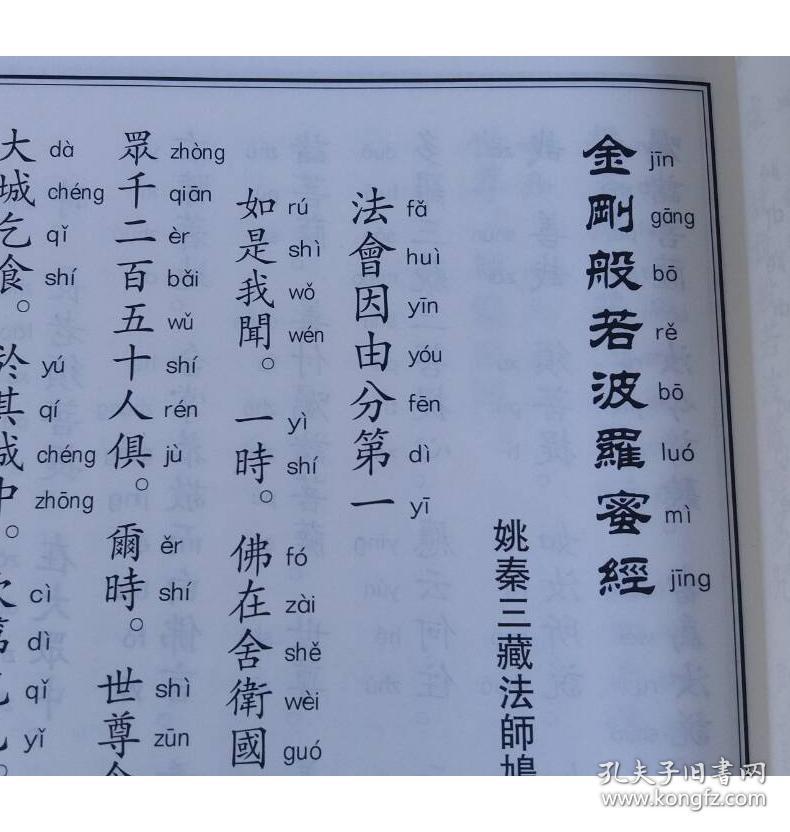 金剛般若波羅蜜經
jīn gāng bō rě bō luó mì jīng
姚秦三藏法師鳩
法會因由分第一
fǎ huì yīn yóu fēn dì yī
如是我聞。一時。佛在舍衛國
rú shì wǒ wén yì shí fó zài shě wèi guó
眾千二百五十人俱。爾時。世尊
zhòng qiān èr bǎi wǔ shí rén jù ěr shí shì zūn
大城乞食。於其城中。次第乞
dà chéng qǐ shí yú qí chéng zhōng cì dì qǐ yǐ
孔夫子旧书网
www.kongfz.com